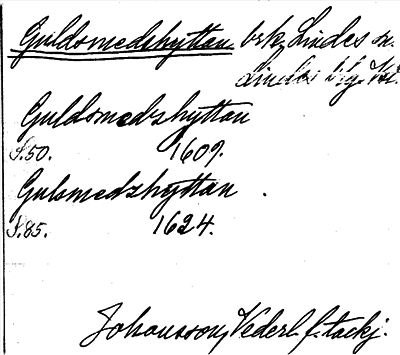 Guldsmedshyttan brk, Lindes sn.
Lindes blg. Vsl.
Guldsmedshyttan
S.50. 1609.
Gulsmedzhyttan
S.85. 1624.
Johansson, Vederl. f. tackj.